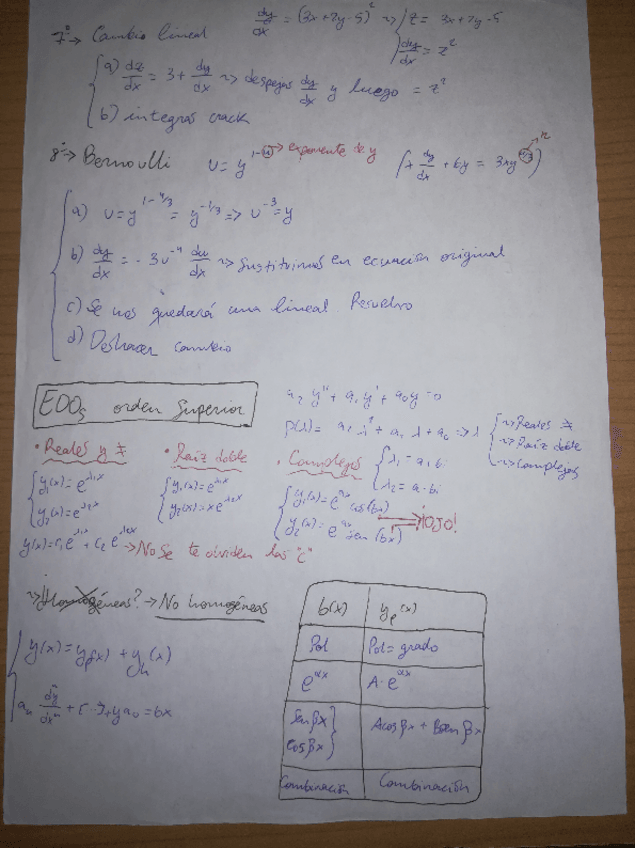 7º → Cambio lineal dy/dx = (3x+2y-5)² ⇝ z = 3x+2y-5
dy/dx = z²
a) dz/dx = 3 + dy/dx ⇝ despejas dy/dx y luego = z²
b) integras crack
8º → Bernoulli u = y^(1-n) → exponente de y (x dy/dx + 6y = 3xy^(4/3)) → n
a) u = y^(1-4/3) = y^(-1/3) => u^(-3) = y
b) dy/dx = -3u^(-4) du/dx ⇝ Sustituimos en ecuación original
c) Se nos quedará una lineal. Resuelvo
d) Deshacer cambio
EDOs orden Superior
a₂ y'' + a₁ y' + a₀ y = 0
p(λ) = a₂ λ² + a₁ λ + a₀ => λ
⇝ Reales ≠
⇝ Raíz doble
⇝ Complejas
• Reales y ≠ • Raíz doble • Complejas
λ₁ = a+bi
λ₂ = a-bi
y₁(x) = e^(λ₁x) y₁(x) = e^(λ₁x) y₁(x) = e^(ax) cos(bx)
y₂(x) = e^(λ₂x) y₂(x) = xe^(λ₂x) y₂(x) = e^(ax) sen(bx) ¡OJO!
y(x) = c₁e^(λ₁x) + c₂e^(λ₂x) → No se te olviden las "c"
⇝ ¿Homogéneas? → No homogéneas
y(x) = yp(x) + yh(x)
aₙ dⁿy/dxⁿ + [...] + ya₀ = bx
b(x) yp(x)
Pol Pol = grado
e^(αx) A·e^(αx)
Sen βx
Cos βx } Acosβx + Bsenβx
Combinación Combinación